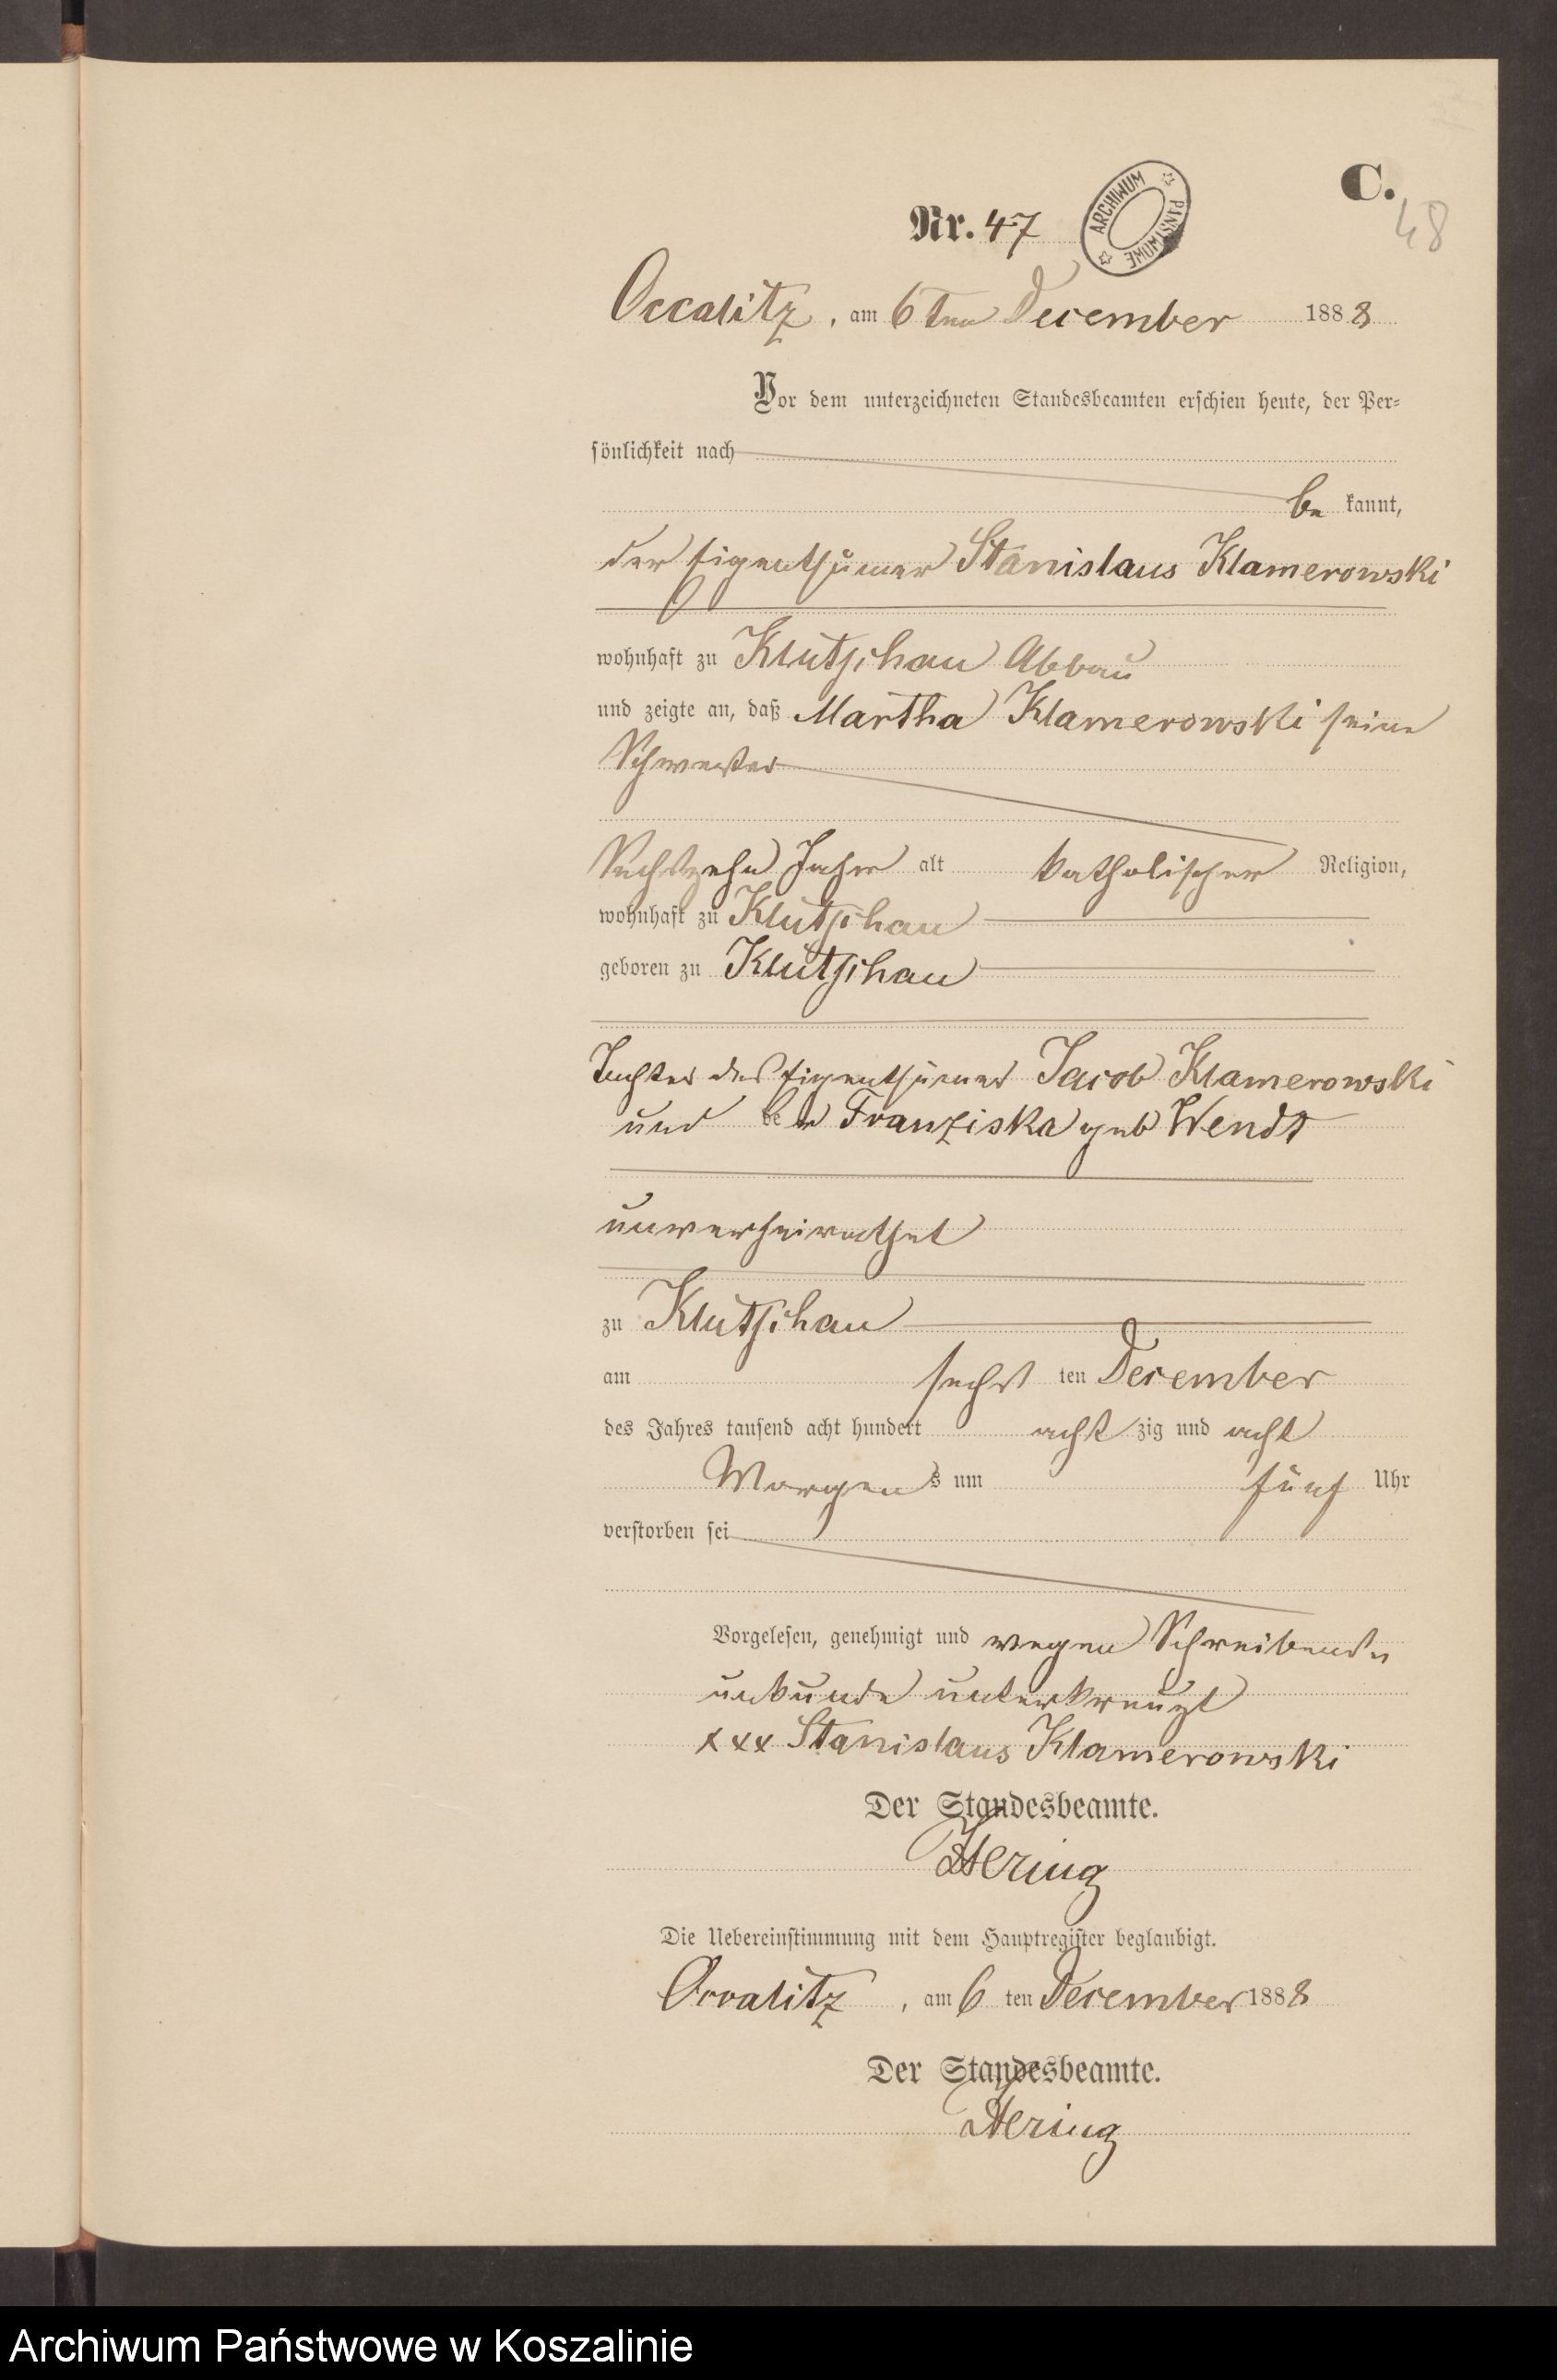 C.
48
Nr. 47
ARCHIWUM PAŃSTWOWE
Occalitz, am 6ten December 1888
Vor dem unterzeichneten Standesbeamten erschien heute, der Per-
sönlichkeit nach
be kannt,
der Eigenthümer Stanislaus Klamerowski
wohnhaft zu Klutschau Abbau
und zeigte an, daß Martha Klamerowski seine
Schwester
Sechszehn Jahr alt katholischer Religion,
wohnhaft zu Klutschau
geboren zu Klutschau
Tochter des Eigenthümer Jacob Klamerowski
und der Franziska geb Wendt
unverheirathet
zu Klutschau
am sechs ten December
des Jahres tausend acht hundert acht zig und acht
Morgen s um fünf Uhr
verstorben sei
Vorgelesen, genehmigt und wegen Schreibens
unkunde unterkreuzt
xxx Stanislaus Klamerowski
Der Standesbeamte.
Hering
Die Uebereinstimmung mit dem Hauptregister beglaubigt.
Occalitz, am 6 ten December 1888
Der Standesbeamte.
Hering
Archiwum Państwowe w Koszalinie